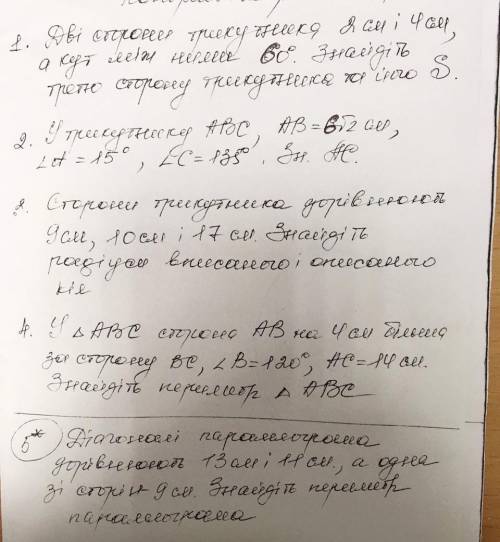 1. Дві сторони трикутника 2 см і 4 см,
а кут між ними 60°. Знайдіть
третю сторону трикутника та його S.
2. У трикутнику ABC, AB = 6√2 см,
∠A = 15°, ∠C = 135°. Зн. AC.
3. Сторони трикутника дорівнюють
9 см, 10 см і 17 см. Знайдіть
радіуси вписаного і описаного
кіл
4. У △ ABC сторона AB на 4 см більша
за сторону BC, ∠B = 120°, AC = 14 см.
Знайдіть периметр △ ABC
5* Діагоналі паралелограма
дорівнюють 13 см і 11 см., а одна
зі сторін 9 см. Знайдіть периметр
паралелограма